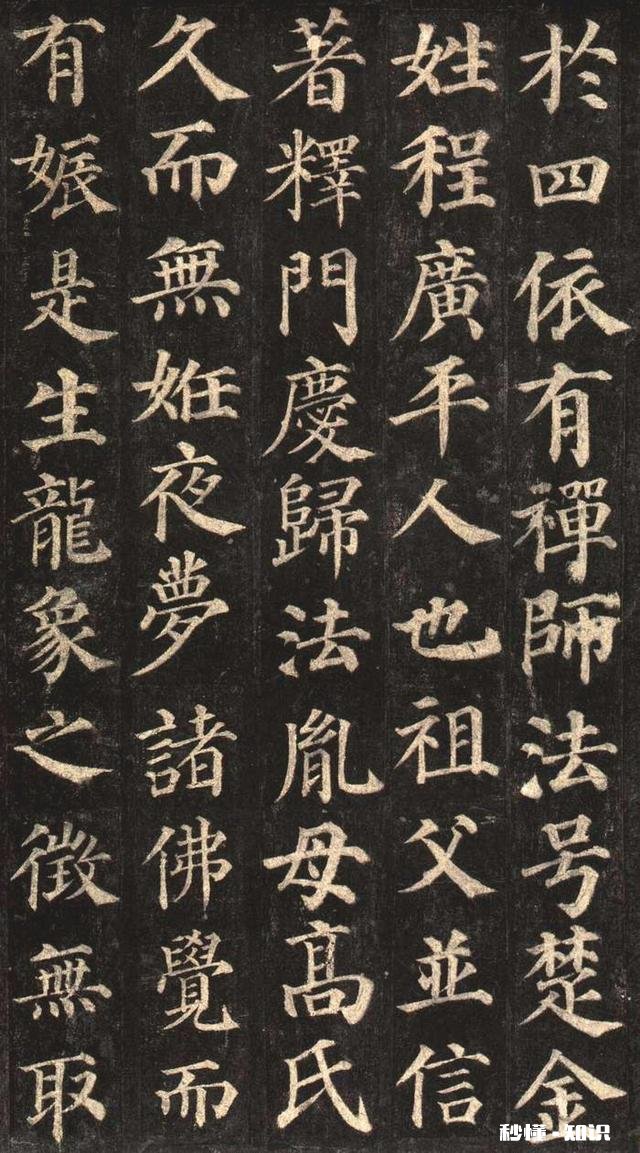 於四依有禪師法号楚金
姓程廣平人也祖父並信
著釋門慶歸法胤母髙氏
久而無姙夜夢諸佛覺而
有娠是生龍象之徵無取
秒懂·知识